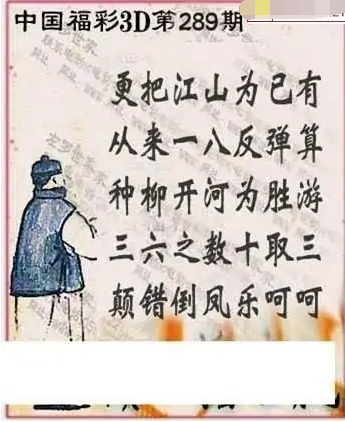 中国福彩3D第289期
更把江山为已有
从来一八反弹算
种柳开河为胜游
三六之数十取三
颠错倒凤乐呵呵